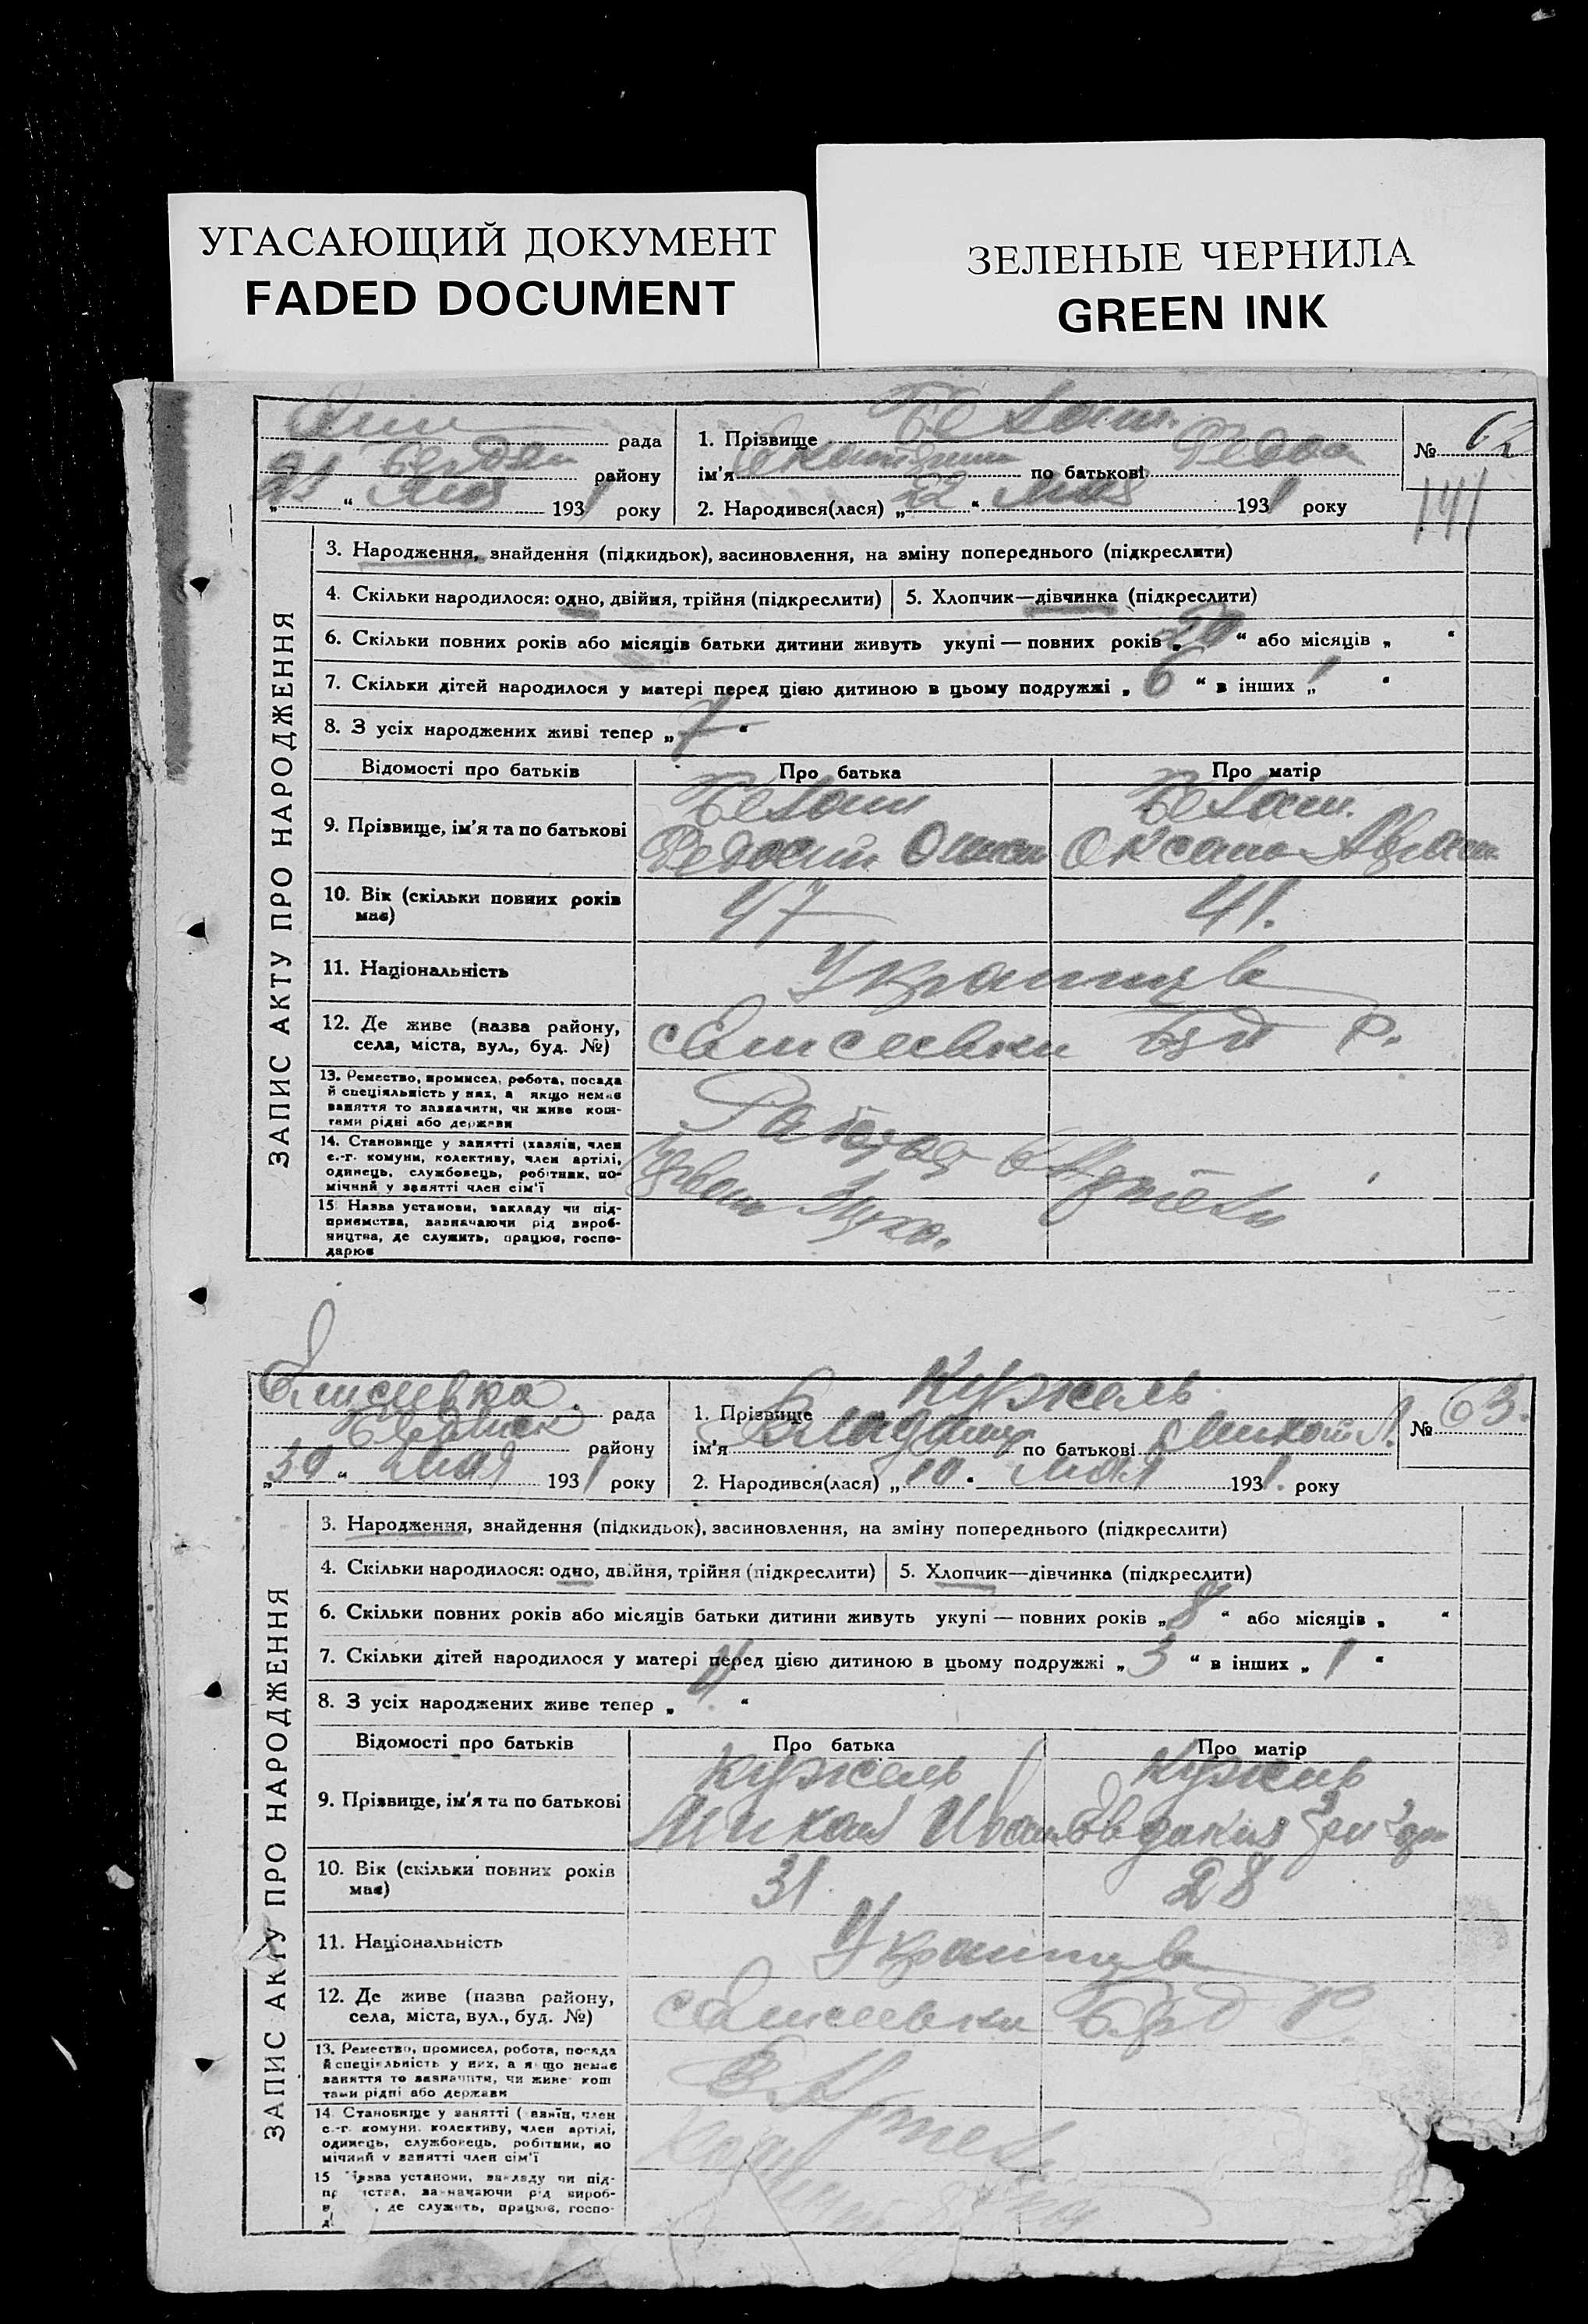 УГАСАЮЩИЙ ДОКУМЕНТ
FADED DOCUMENT
ЗЕЛЕНЫЕ ЧЕРНИЛА
GREEN INK
рада
району
„ “ мая 1931 року
1. Прізвище
ім'я по батькові Федова
2. Народився(лася) „22“ мая 1931 року
№ 62
141
ЗАПИС АКТУ ПРО НАРОДЖЕННЯ
3. Народження, знайдення (підкидьок), засиновлення, на зміну попереднього (підкреслити)
4. Скільки народилося: одно, двійня, трійня (підкреслити)
5. Хлопчик—дівчинка (підкреслити)
6. Скільки повних років або місяців батьки дитини живуть укупі — повних років „20“ або місяців „ “
7. Скільки дітей народилося у матері перед цією дитиною в цьому подружжі „6“ в інших „1“
8. З усіх народжених живі тепер „7“
Відомості про батьків
Про батька
Про матір
9. Прізвище, ім'я та по батькові
Оксана
10. Вік (скільки повних років має)
47
41.
11. Національність
Украинцв
12. Де живе (назва району, села, міста, вул., буд. №)
с Елисеевки Брд Р.
13. Ремество, промисел, робота, посада й спеціяльність у них, а якщо немає заняття то зазначити, чи живе коштами рідні або держави
14. Становище у занятті (хазяїн, член с.-г. комуни, колективу, член артілі, одинець, службовець, робітник, помічний у занятті член сім'ї
15. Назва установи, закладу чи підприємства, зазначаючи рід виробництва, де служить, працює, господарює
Елисеевка рада
району
„30“ мая 1931 року
1. Прізвище Кужель
ім'я Владимир по батькові
2. Народився(лася) „10“ мая 1931. року
№ 63.
ЗАПИС АКТУ ПРО НАРОДЖЕННЯ
3. Народження, знайдення (підкидьок), засиновлення, на зміну попереднього (підкреслити)
4. Скільки народилося: одно, двійня, трійня (підкреслити)
5. Хлопчик—дівчинка (підкреслити)
6. Скільки повних років або місяців батьки дитини живуть укупі — повних років „8“ або місяців „ “
7. Скільки дітей народилося у матері перед цією дитиною в цьому подружжі „3“ в інших „1“
8. З усіх народжених живе тепер „4“
Відомості про батьків
Про батька
Про матір
9. Прізвище, ім'я та по батькові
Кужель
Кужель
Михаил Иван
Евдокия
10. Вік (скільки повних років має)
31
28
11. Національність
Украинцв
12. Де живе (назва району, села, міста, вул., буд. №)
с Елисеевки Брд Р.
13. Ремество, промисел, робота, посада й спеціяльність у них, а якщо немає заняття то зазначити, чи живе коштами рідні або держави
14. Становище у занятті (хазяїн, член с.-г. комуни, колективу, член артілі, одинець, службовець, робітник, помічний у занятті член сім'ї
15. Назва установи, закладу чи підприємства, зазначаючи рід виробництва, де служить, працює, господарює